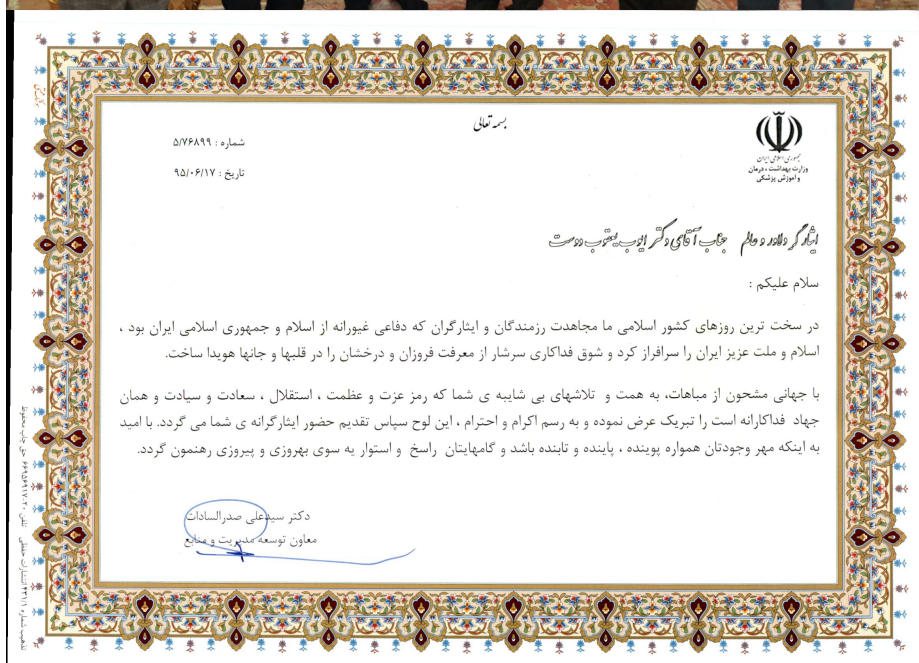 بسمه تعالی
جمهوری اسلامی ایران
وزارت بهداشت ، درمان
و آموزش پزشکی
شماره : ۵/۷۶۸۹۹
تاریخ : ۹۵/۰۶/۱۷
ایثارگر دلاور و عالم جناب آقای دکتر ایوب یعقوب دوست
سلام علیکم :
در سخت ترین روزهای کشور اسلامی ما مجاهدت رزمندگان و ایثارگران که دفاعی غیورانه از اسلام و جمهوری اسلامی ایران بود ،
اسلام و ملت عزیز ایران را سرافراز کرد و شوق فداکاری سرشار از معرفت فروزان و درخشان را در قلبها و جانها هویدا ساخت.
با جهانی مشحون از مباهات، به همت و تلاشهای بی شایبه ی شما که رمز عزت و عظمت ، استقلال ، سعادت و سیادت و همان
جهاد فداکارانه است را تبریک عرض نموده و به رسم اکرام و احترام ، این لوح سپاس تقدیم حضور ایثارگرانه ی شما می گردد. با امید
به اینکه مهر وجودتان همواره پوینده ، پاینده و تابنده باشد و گامهایتان راسخ و استوار به سوی بهروزی و پیروزی رهنمون گردد.
دکتر سیدعلی صدرالسادات
معاون توسعه مدیریت و منابع
تذهیب شماره ۴۳۱/۱ انتشارات حفظی تلفن ۲۰-۶۶۹۵۶۹۱۷ حق چاپ محفوظ